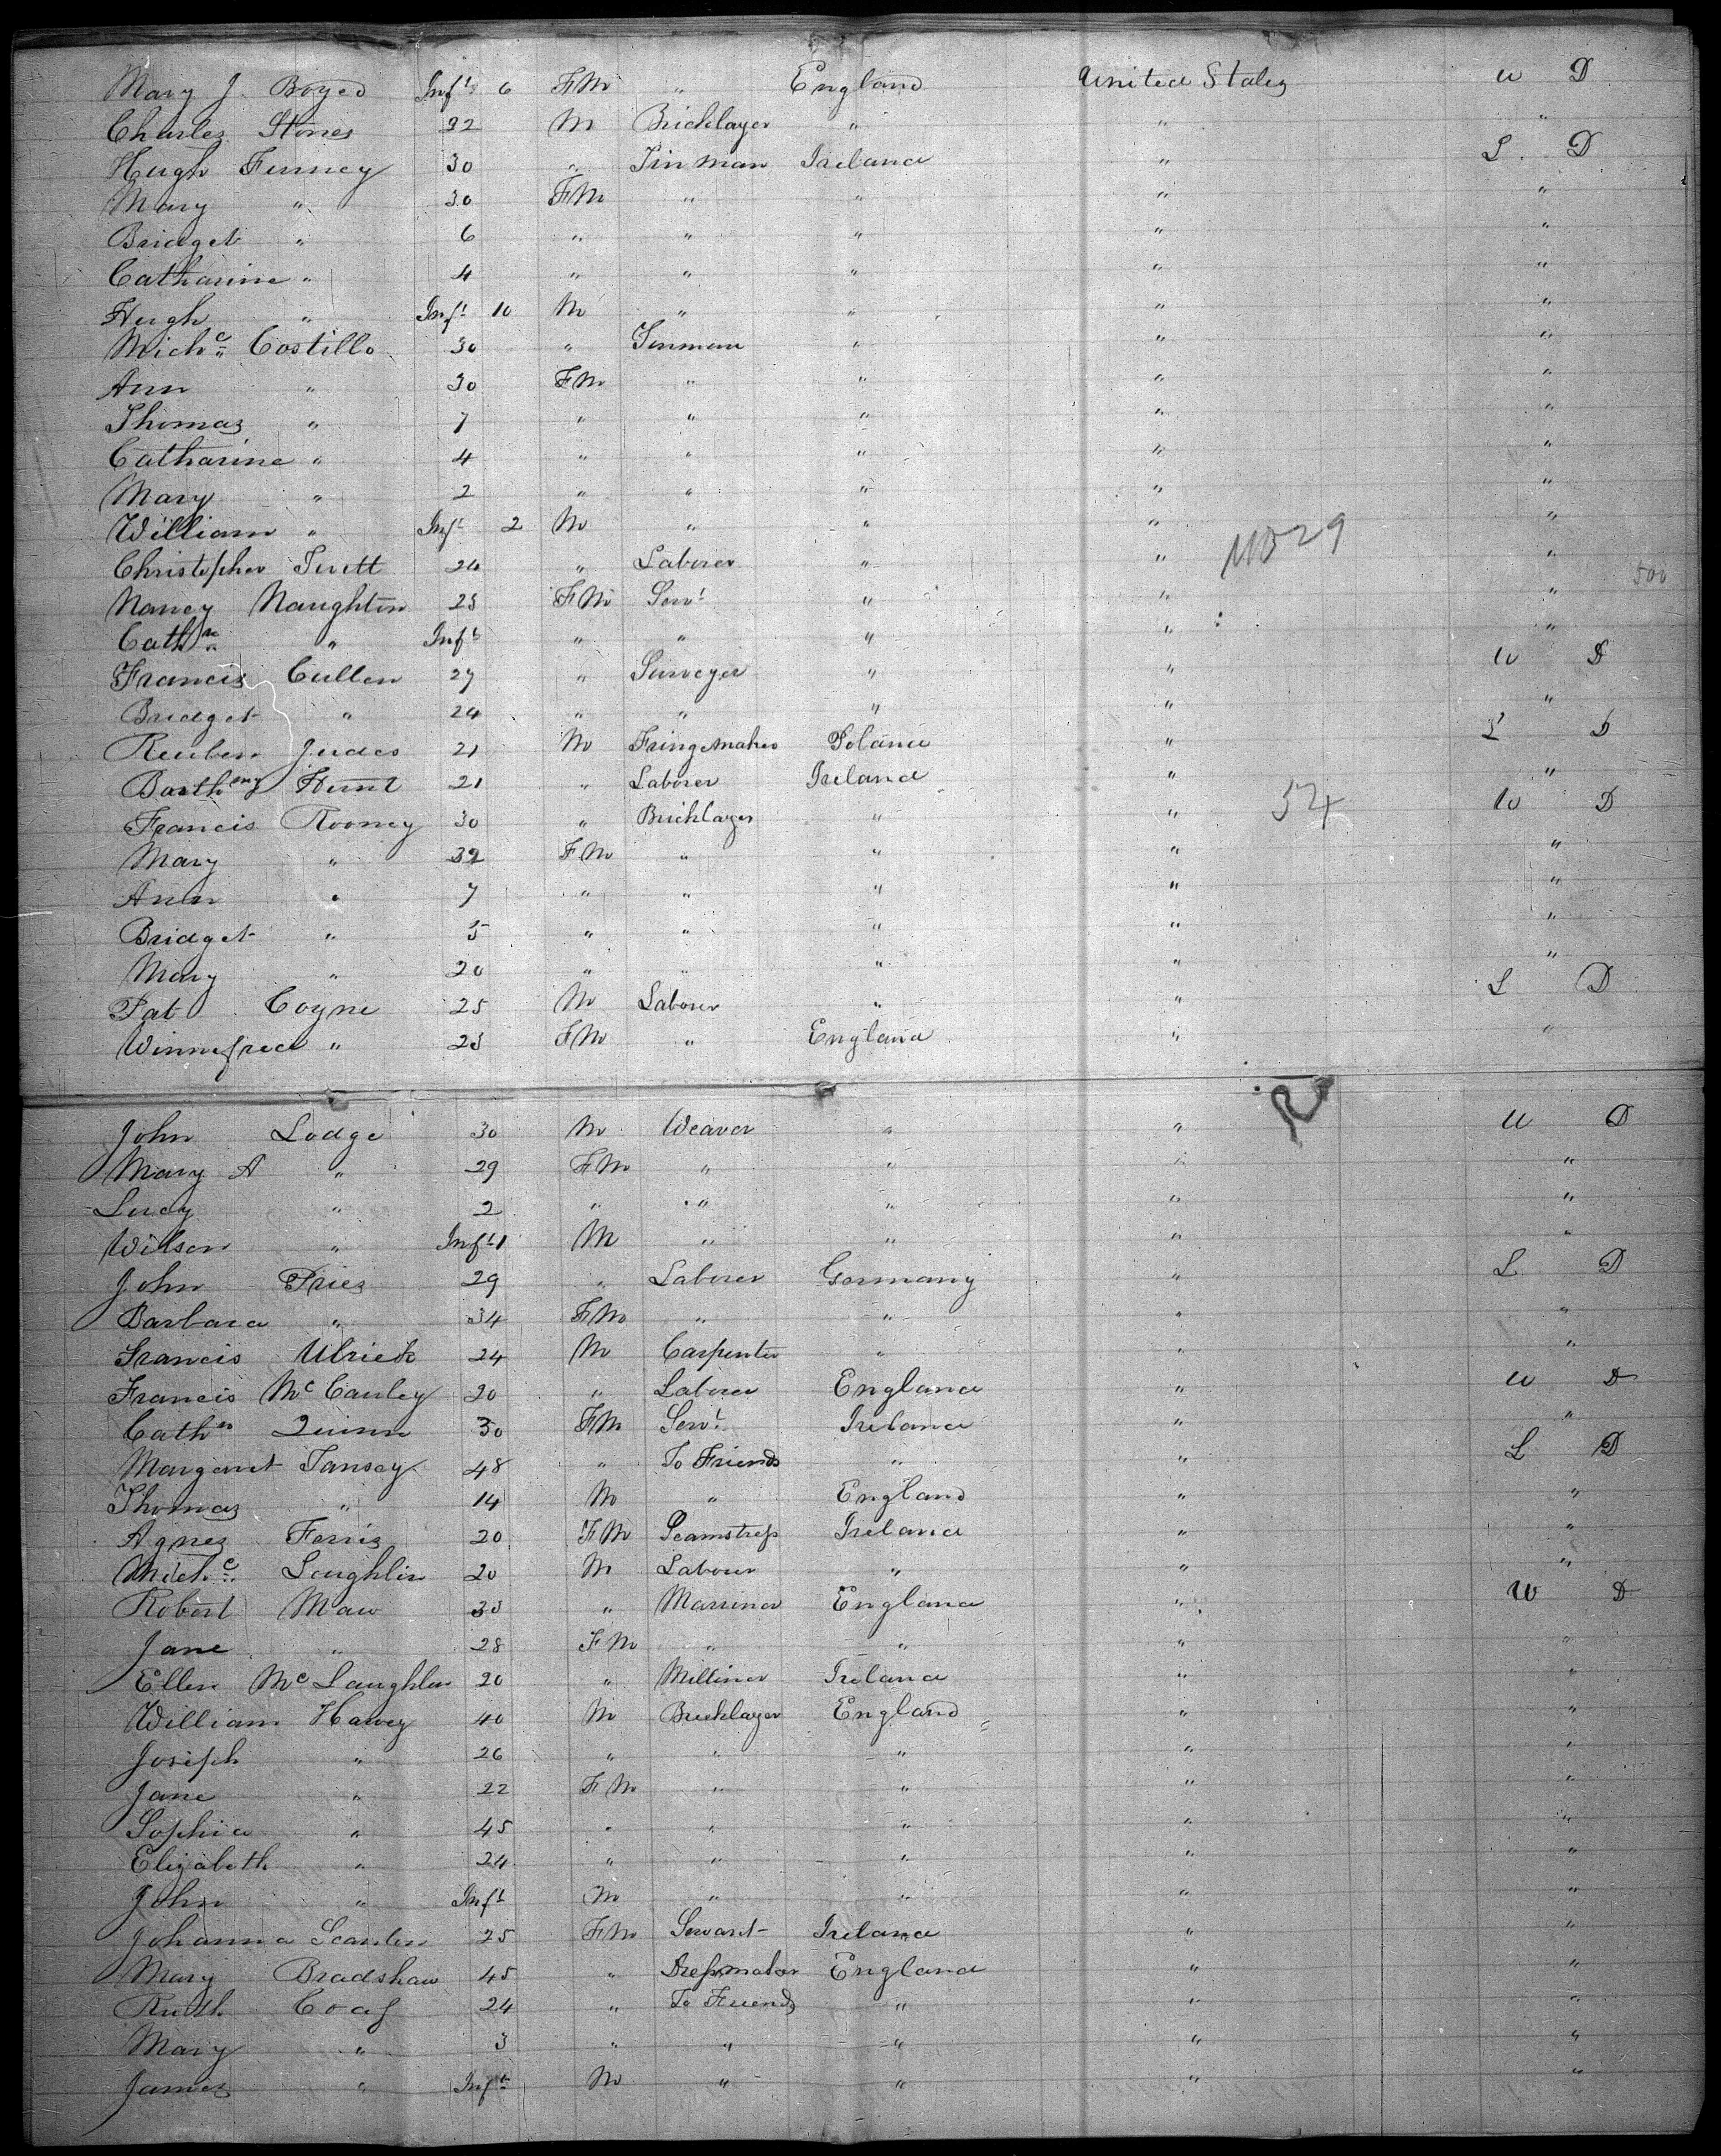 Mary J. Boyed Inft 6 FM " England United States U D
Charles Stones 32 M Bricklayer " " "
Hugh Finney 30 " Tinman Ireland " L D
Mary " 30 FM " " " "
Bridget " 6 " " " " "
Catharine " 4 " " " " "
Hugh " Inft 10 M " " " "
Michl Costillo 30 " Tinman " " "
Ann " 30 FM " " " "
Thomas " 7 " " " " "
Catharine " 4 " " " " "
Mary " 2 " " " " "
William " Inft 2 M " " " "
Christopher 24 " Laborer " " "
Nancy Naughton 25 FM Servt " " "
Cathn " Inft " " " " "
Francis Cullen 27 " Surveyor " " U D
Bridget " 24 " " " " "
Reuben Judes 21 M Fringemaker Poland " L D
Barthmy Hunt 21 " Laborer Ireland " "
Francis Rooney 30 " Bricklayer " " 54 U D
Mary " 32 FM " " " "
Ann " 7 " " " " "
Bridget " 5 " " " " "
Mary " 20 " " " " "
Pat Coyne 25 M Laborer " " L D
Winnefred " 23 FM " England " "
John Lodge 30 M Weaver " " U D
Mary A " 29 FM " " " "
Lucy " 2 " " " " "
Wilson " Inft 1 M " " " "
John Pries 29 " Laborer Germany " L D
Barbara " 34 FM " " " "
Francis Ulrick 24 M Carpenter " " "
Francis McCauley 20 " Laborer England " U D
Cathn Quinn 30 FM Servt Ireland " "
Margaret Tansey 48 " To Friends " " L D
Thomas " 14 M " England " "
Agnes Ferris 20 FM Seamstress Ireland " "
Michl Loughlin 20 M Laborer " " "
Robert Maw 33 " Marriner England " U D
Jane " 28 FM " " " "
Ellen McLaughlin 20 " Milliner Ireland " "
William Harvey 40 M Bricklayer England " "
Joseph " 26 " " " " "
Jane " 22 FM " " " "
Sophia " 45 " " " " "
Elizabeth " 24 " " " " "
John " Inft M " " " "
Johanna Scanlen 25 FM Servant Ireland " "
Mary Bradshaw 45 " Dressmaker England " "
Ruth 24 " To Friends " " "
Mary " 3 " " " " "
James " Inft M " " " "